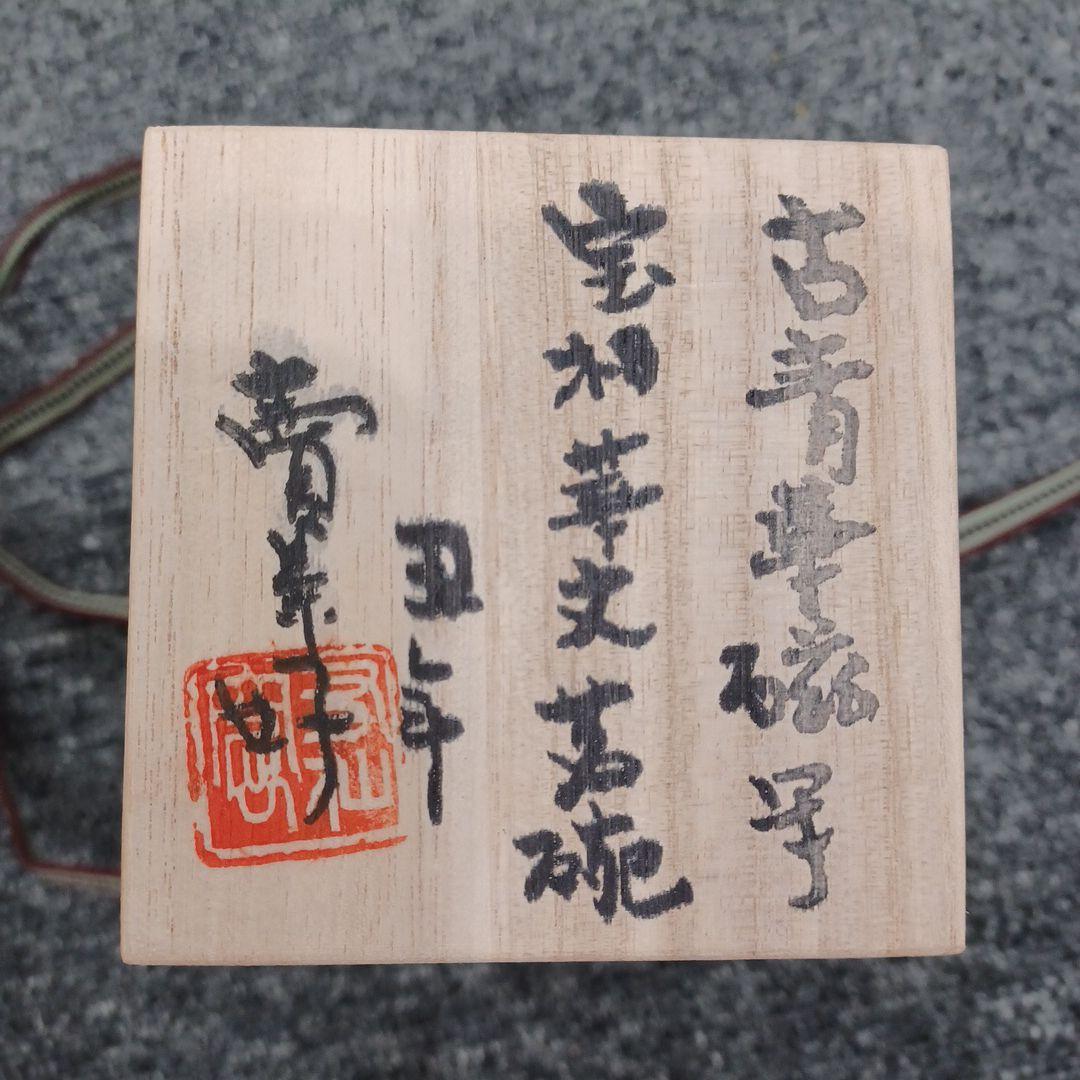 古青華磁写
宝相華文茶碗
丑年